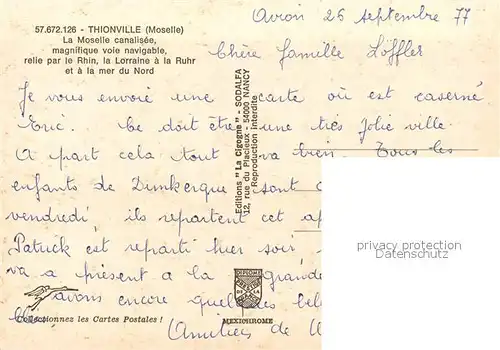 57.672.126 - THIONVILLE (Moselle)
La Moselle canalisée,
magnifique voie navigable,
relie par le Rhin, la Lorraine à la Ruhr
et à la mer du Nord
Avion 26 septembre 77
Chère famille Löffler
Je vous envoie une carte où est caserné
Eric. Ce doit être une très jolie ville.
A part cela tout va bien. Tous les
enfants de Dunkerque sont
vendredi ils repartent cet
Patrick est reparti hier soir
va a présent a la grande
avons encore quelques
(Amitiés de
Editions "La Cigogne" - SODALFA
12, rue du Placieux - 54000 NANCY
Reproduction interdite
DIPLOME
DE LA
MEXICHROME
Collectionnez les Cartes Postales !
privacy protection
Datenschutz